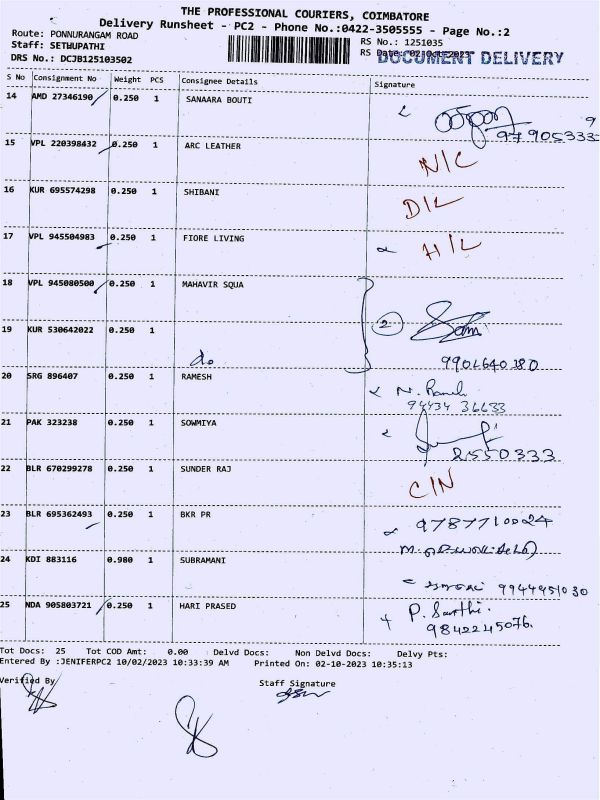 THE PROFESSIONAL COURIERS, COIMBATORE
Delivery Runsheet - PC2 - Phone No.:0422-3505555 - Page No.:2
Route: PONNURANGAM ROAD
RS No.: 1251035
Staff: SETHUPATHI
RS Date: 02-Oct-2023
DOCUMENT DELIVERY
DRS No.: DCJB125103502
S No Consignment No Weight PCS Consignee Details Signature
14 AMD 27346190 0.250 1 SANAARA BOUTI
97905333
9
15 VPL 220398432 0.250 1 ARC LEATHER N/C
16 KUR 695574298 0.250 1 SHIBANI D/L
17 VPL 945504983 0.250 1 FIORE LIVING H/L
18 VPL 945080500 0.250 1 MAHAVIR SQUA
2
19 KUR 530642022 0.250 1
do
9901640380
20 SRG 896407 0.250 1 RAMESH N. Ramesh
94434 36633
21 PAK 323238 0.250 1 SOWMIYA
2550333
22 BLR 670299278 0.250 1 SUNDER RAJ C/N
23 BLR 695362493 0.250 1 BKR PR 9787710024
24 KDI 883116 0.980 1 SUBRAMANI
9944951030
25 NDA 905803721 0.250 1 HARI PRASED P. Sarthi.
9842245076.
Tot Docs: 25 Tot COD Amt: 0.00 Delvd Docs: Non Delvd Docs: Delvy Pts:
Entered By :JENIFERPC2 10/02/2023 10:33:39 AM Printed On: 02-10-2023 10:35:13
Verified By Staff Signature